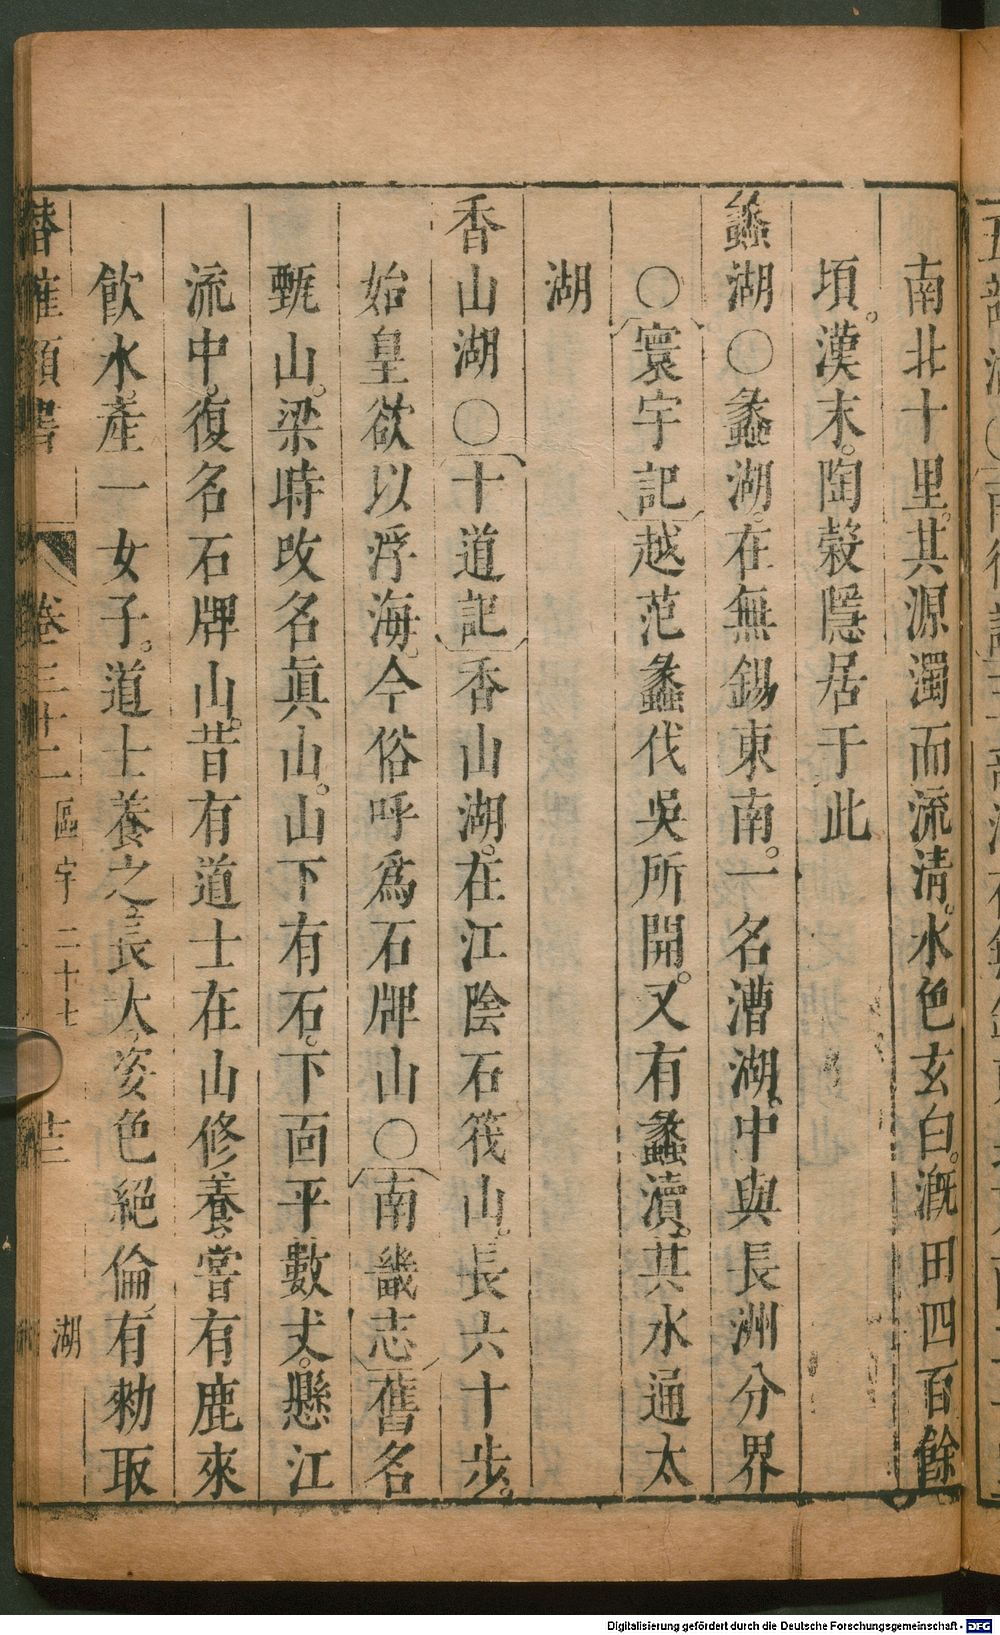 南北十里。其源濁而流清。水色玄白。漑田四百餘
頃。漢末。陶穀隱居于此
蠡湖〇蠡湖。在無錫東南。一名漕湖。中與長洲分界
〇寰宇記越范蠡伐吳所開。又有蠡瀆。其水通太
湖
香山湖〇十道記香山湖。在江陰石筏山。長六十步。
始皇欲以浮海。今俗呼爲石牌山〇南畿志舊名
甄山。梁時改名眞山。山下有石。下面平數丈。懸江
流中。復名石牌山。昔有道士在山修養。嘗有鹿來
飲水。產一女子。道士養之。長大。姿色絕倫。有勑取
潛確類書
卷三十二 區宇二十七 十三 湖
Digitalisierung gefördert durch die Deutsche Forschungsgemeinschaft - DFG